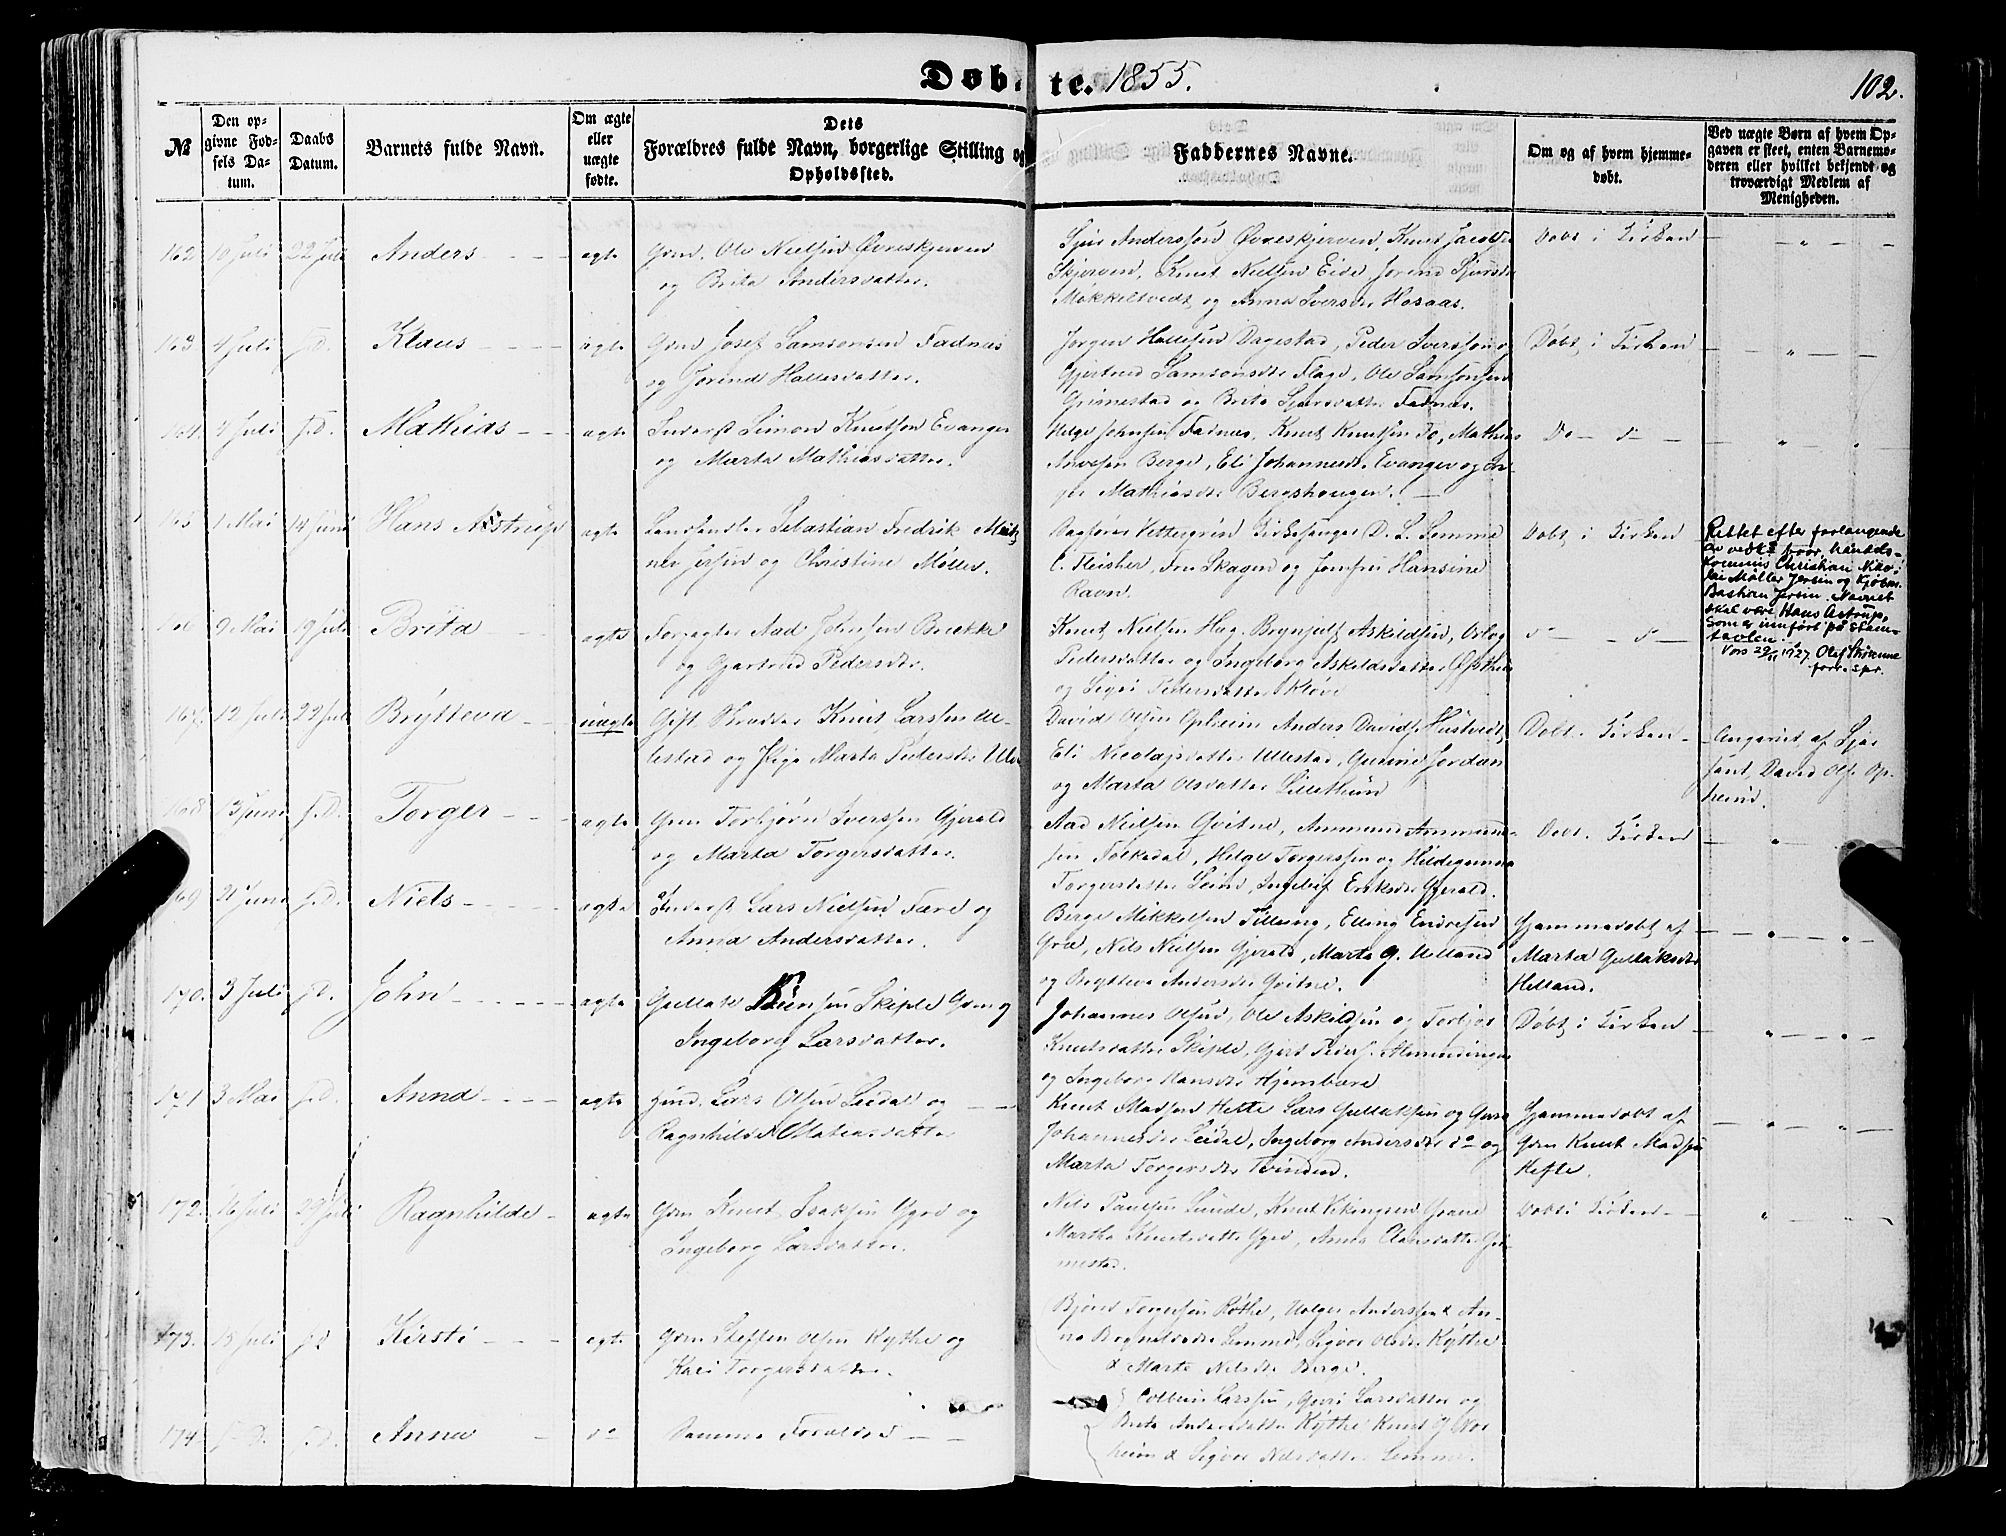 Døbte. 1855.
102.
№
Den op-
givne Fød-
sels Da-
tum.
Daabs
Datum.
Barnets fulde Navn.
Om ægte
eller
uægte
fødte.
Dets
Forældres fulde Navn, borgerlige Stilling og
Opholdssted.
Faddernes Navne.
Om og af hvem hjemme-
døbt.
Ved uægte Børn af hvem Op-
gaven er skeet, enten Barnemo-
deren eller hvilket bekjendt og
troværdigt Medlem af
Menigheden.
162 10 Juli 22 Juli Anders ægte Grm. Ole Nielsen Øvreskjerven
og Brita Andersdatter.
Sjur Anderssøn Øvreskjerven, Knut Jacobs.
Skjerven, Knut Nielsen Eide, Jorend Sjursdr
Møkkeltvedt og Anna Iversdr Hosaas.
Døbt i Kirken
163 4 Juli s.D. Klaus ægte Grm Josef Samsonsen Fadnes
og Jorend Hallesdatter.
Jørgen Hallesen Dagestad, Peder Iverssøn og
Gjertrud Samsonsdr Flage, Ole Samsonsen
Grimestad og Brita Sjursdatter Fadnes.
Døbt i Kirken
164 4 Juli s.D. Mathias ægte Inderst Simon Knutsøn Evanger
og Marta Mathiasdatter.
Helge Johnsen Fadnes, Knut Knutsen To, Mathias
Arnesen Berge, Eli Johannesdr Evanger og
Mathiasdr Bergshaugen.
Do
165 1 Mai 14 Juni Hans Astrup ægte Sebastian Fredrik
Jersin og Christine Møller.
Vettergren Kirkesanger D. L. Lemme
C. Fleisher, Fru Skagen og Jomfru Hansine
Ravn.
Døbt i Kirken
Rettet efter forlangende
av vedk. hoor. handels-
Christian Niko-
lai Møller Jersin og Kjøbm.
Bastian Jersin. Navnet
skal være Hans Astrup,
som er innført på stam-
tavlen.
Vors 29/11 1927. Olaf
9 Mai 9 Juli Brita ægte Forpagter Aad Johnsen Brekke
og Gjertrud Pedersdr.
Knut Nielsen Hæg. Brynjulf Askildsen,
Pedersdatter og Ingeborg Askildsdatter
og Sigri Pedersdatter Kløve
167. 12 Juli 22 Juli Brytteva uægte Gift Knut Larssen Ul-
lestad og Pige Marta Pedersdr
David Olsen Opheim Anders Davids. Hustvedt,
Eli Nicolaisdatter Ullestad, Gurine Jordan
og Marta Olsdatter Lillethun
Døbt i Kirken
Angivet af
David Ols. Op-
heim.
168 3 Juni s.D. Torger ægte Grm Torbjørn Iverssen Gjerald
og Marta Torgersdatter.
Aad Nielsen Gvitne, Ammund Ammunds-
sen Folkedal, Helge Torgerssen og Hildegunna
Torgersdatter Leine, Ingeleif Eriksdr Gjerald.
Døbt i Kirken
169 21 Juni s.D. Niels ægte Inderst Lars Nielsen Fære og
Anna Andersdatter.
Berge Mikkelsen Tillung, Elling Endresen
Græ, Nils Nielsen Gjerald, Marta G. Helland
og Brytteva Andersdr Gvitne.
Hjemmedøbt af
Marta Gullaksdr
Helland.
170. 3 Juli s.D. John ægte Gullak Skiple Grm og
Ingeborg Larsdatter.
Johannes Olsen, Ole Askildsen og Torbjør
Knutsdatter Skiple, Gjert Peders. Almendingen
og Ingeborg Hansdr Hjembære
Døbt i Kirken
171 3 Mai s.D. Anna ægte Husm. Lars Olsen Leidal og
Ragnhilde
Knut Madsen Hefte Lars Gullaksen og Guro
Johannesdr Leidal, Ingeborg Andersdr do og
Marta Torgersdr Tvinden.
Hjemmedøbt af
Grm Knut Madsen
Hefte.
172. 16 Juli 29 Juli Ragnhilde ægte Grm Knut Isaksen Ygre og
Ingeborg Larsdatter.
Nils Paulsen Lunde, Knut Vikingsen Grane
Martha Knutsdatter Ygre, Anna Clausdatter Gri-
mestad.
Døbt i Kirken
173. 15 Juli s.D. Kirsti ægte Grm Steffen Olsen Kythe og
Kari Torgersdatter.
Bjørn Torgersen Røthe, Holger Anderssen & An-
na Lemme, Sigvor Olsdr Kythe
& Marta Nilsdr Berge.
174 s.D. s.D. Anna do Samme Forældre
Colbein Larssen, Guri Larsdatter og
Brita Andersdatter Kythe Knut
& Sigvor Nilsdatter Lemme.